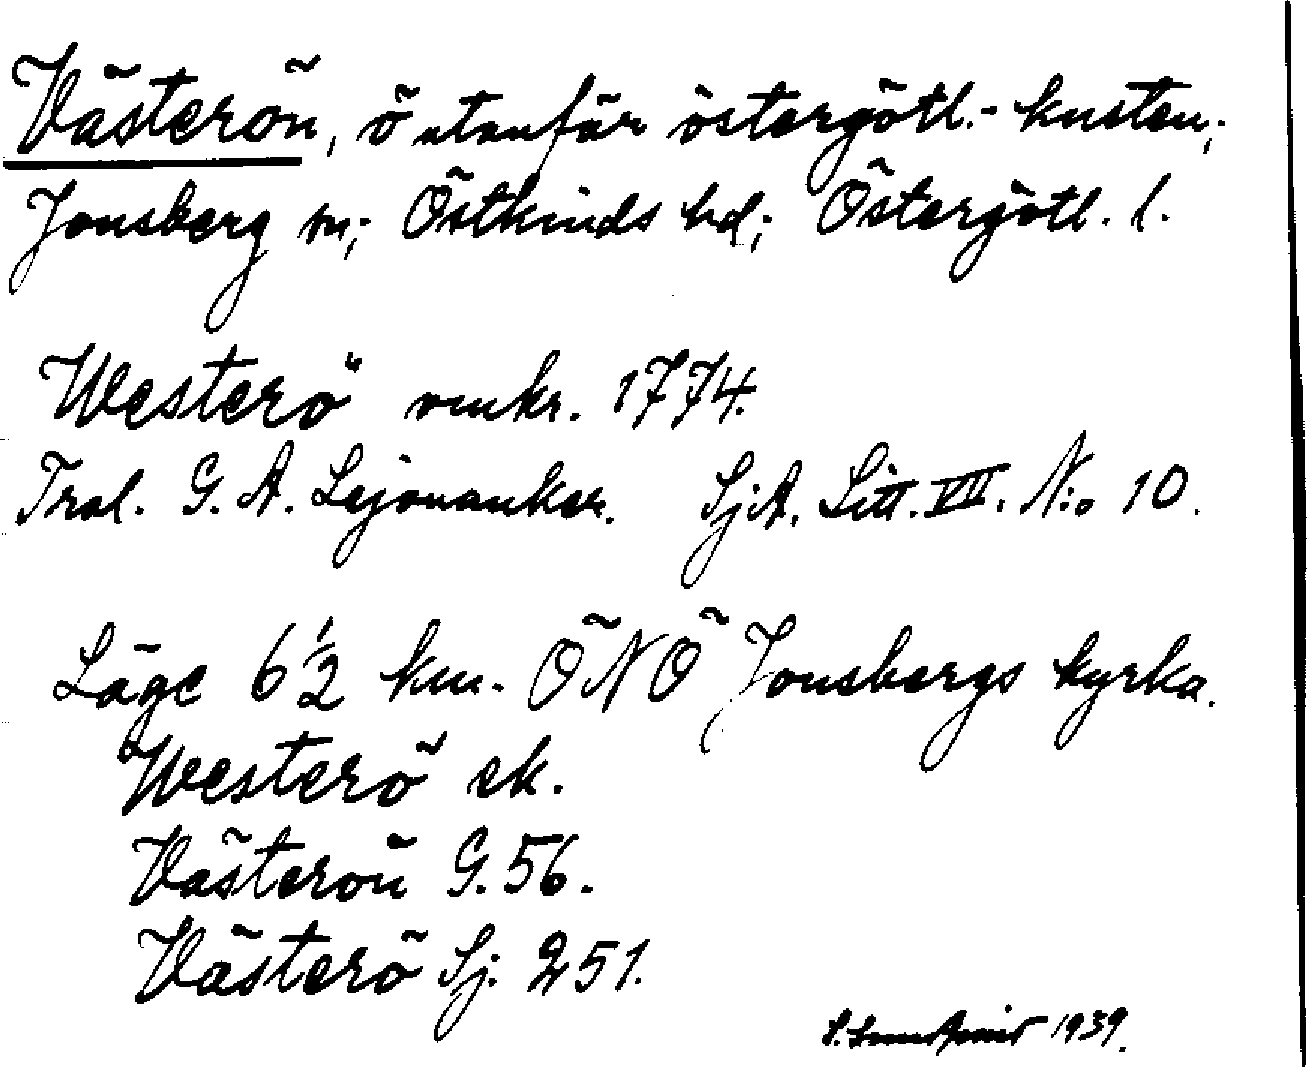 Västerön, ö utanför östergötl.-kusten;
Jonsberg sn; Östkinds hd; Östergötl. l.
Westerö omkr. 1774.
Trol. G. A. Lejonanker. SjA. Litt. VII. N:o 10.
Läge 6 1/2 km. ÖNÖ Jonsbergs kyrka.
Westerö ek.
Västerön G. 56.
Västerö Sj. 251.
1939.